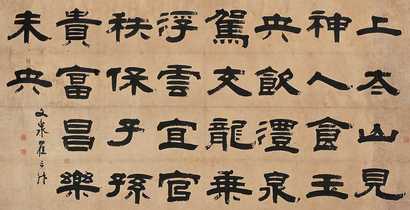 上太山見
神人食玉
央飲澧泉
駕交龍乘
浮雲宜官
秩保子孫
貴富昌樂
未央
文泉翟云升